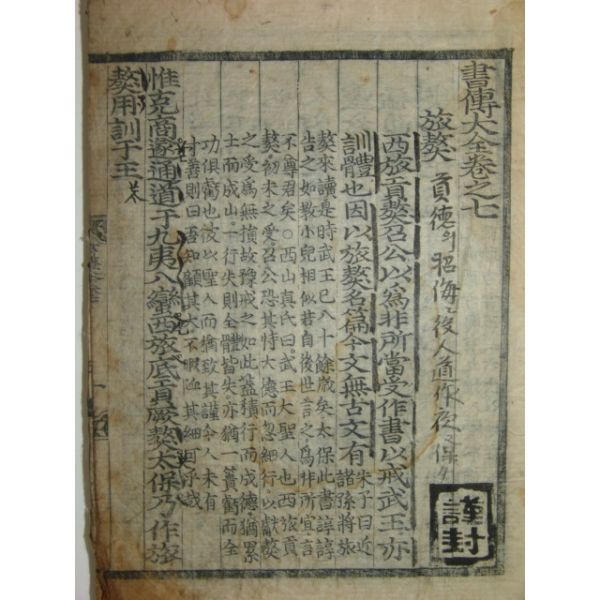 書傳大全卷之七
旅獒
謹封
西旅貢獒召公以為非所當受作書以戒武王亦
訓體也因以旅獒名篇今文無古文有
朱子曰近
諸孫將旅
獒來讀是時武王已八十餘歲矣太保此書諄諄
告之如教小兒相似若自後世言之為非所宜言
不尊君矣○西山真氏曰武王大聖人也西旅貢
獒初未之受召公恐其恃大德而忽細行以獻獒
之受為無損故豫戒之如此蓋積行而成德猶累
土而成山一行失則全體皆失亦猶一簣虧而全
功俱虧也彼以聖人而猶致其謹今人未有
寸善則曰吾知顧其大不暇恤其細可乎哉
惟克商遂通道于九夷八蠻西旅底貢厥獒太保乃作旅
獒用訓于王